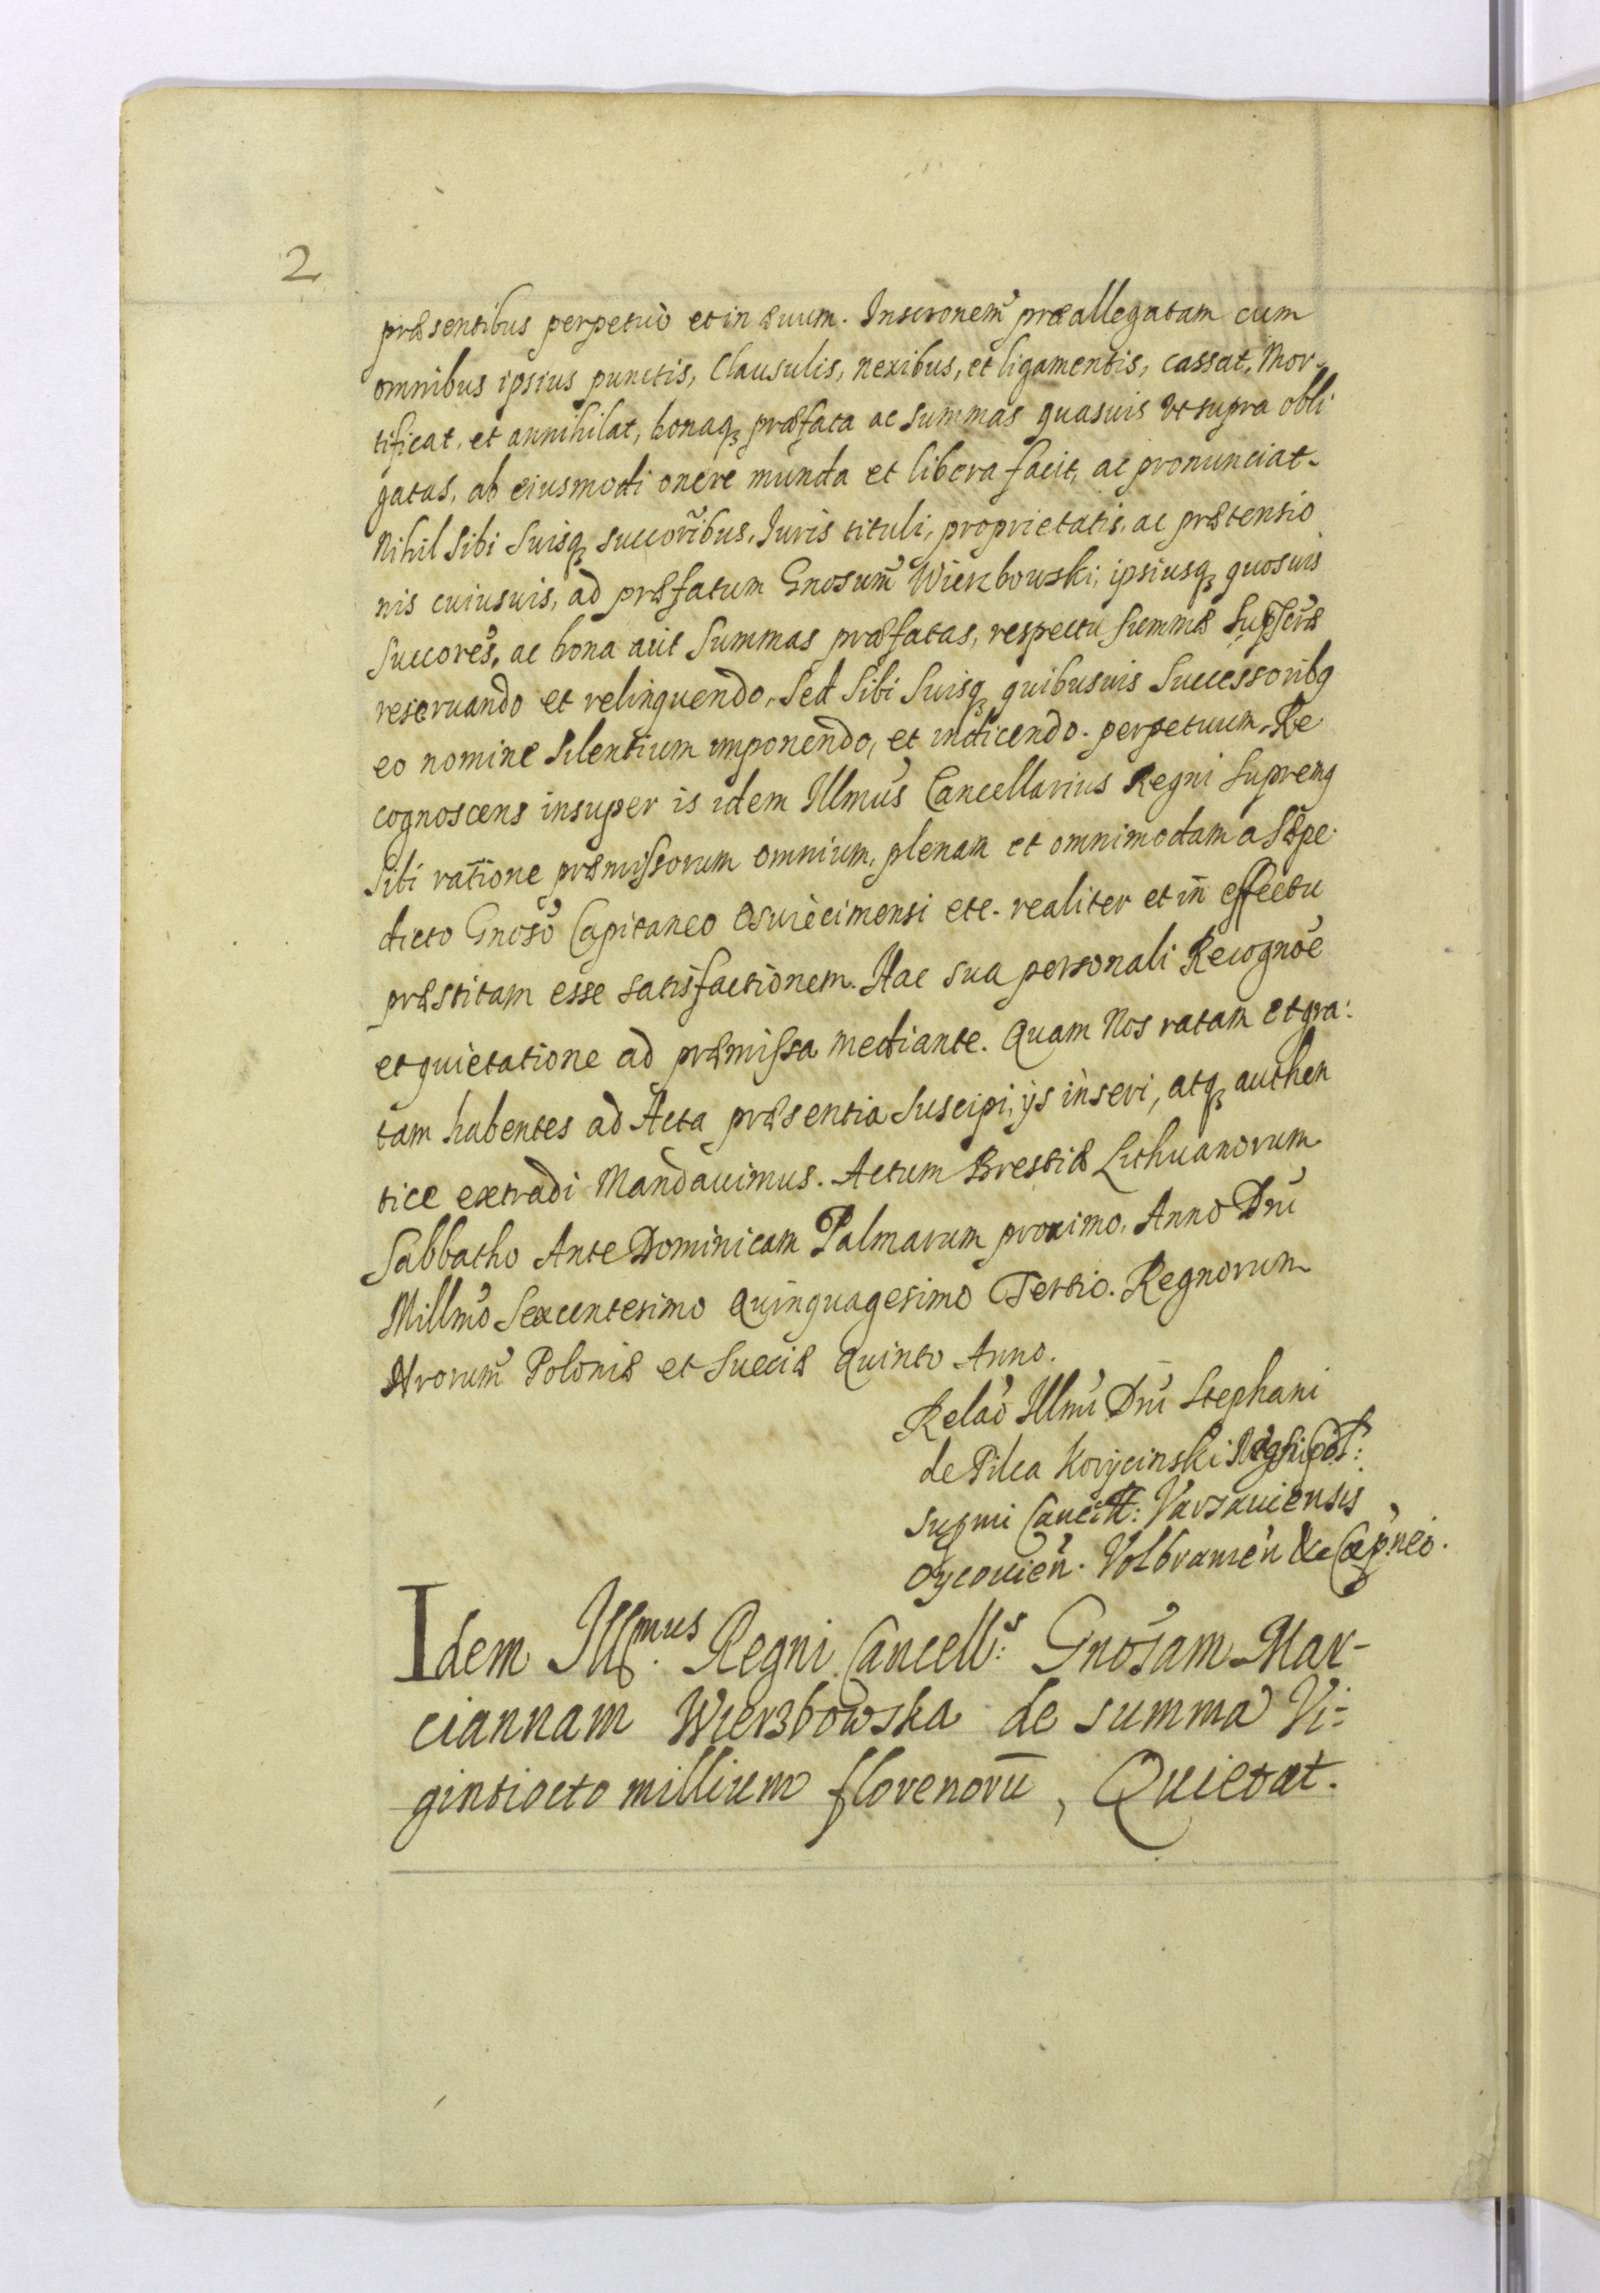 2
præsentibus perpetuò et in ævum. Inscrōnem præallegatam cum
omnibus ipsius punctis, Clausulis, nexibus, et ligamentis, cassat, Mor-
tificat, et annihilat, bonaqꝫ præfata ac summas quasuis vt supra obli
gatas, ab eiusmodi onere munda et libera facit, ac pronunciat.
Nihil sibi suisqꝫ succoribus, Iuris tituli, proprietatis, ac prætensio
nis cuiusuis, ad præfatum Gnosum Wierzbowski, ipsiusqꝫ quosuis
Succores, ac bona aut summas præfatas, respectu summæ
reseruando et relinquendo, Sed sibi suisqꝫ quibusuis Successoribq
eo nomine silentium imponendo, et indicendo perpetuum. Re
cognoscens insuper is idem Illmus Cancellarius Regni supremq
sibi ratione præmissorum omnium, plenam et omnimodam a sæpe
dicto Gnoso Capitaneo Osuiècimensi etc. realiter et in effectu
præstitam esse satisfactionem. Hac sua personali Recognoe
et quietatione ad præmissa mediante. Quam Nos ratam et gra:
tam habentes ad Acta præsentia suscipi, ijs inseri, atqꝫ authen
tice extradi Mandauimus. Actum Brestiæ Lithuanorum
Sabbatho Ante Dominicam Palmarum proximo. Anno Dni
Millmo Sexcentesimo Quinquagesimo Tertio. Regnorum
Nrorum Poloniæ et Sueciæ Quinto Anno.
Relao Illmi Dni Stephani
de Pilca Korycinski
Supmi Cancell: Varsauiensis
Oycouien. Volbramen &c Capneo.
Idem Illmus. Regni Cancell:s Gnosam Mar-
ciannam Wierzbowska de summa Vi-
gintiocto millium florenorū, Quietat.